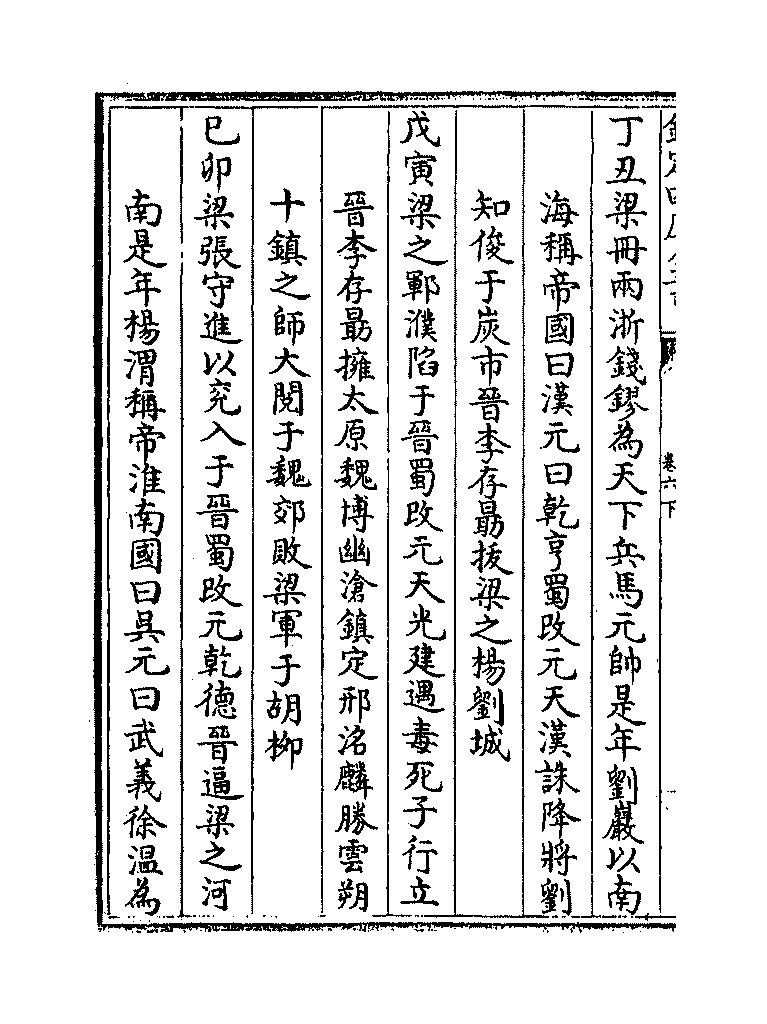 丁丑梁冊兩浙錢鏐為天下兵馬元帥是年劉巖以南
海稱帝國曰漢元曰乾亨蜀改元天漢誅降將劉
知俊于炭市晉李存勗拔梁之楊劉城
戊寅梁之鄆濮陷于晉蜀改元天光建遇毒死子行立
晉李存勗擁太原魏博幽滄鎮定邢洺麟勝雲朔
十鎮之師大閱于魏郊敗梁軍于胡柳
巳卯梁張守進以兖入于晉蜀改元乾德晉逼梁之河
南是年楊渭稱帝淮南國曰吳元曰武義徐溫為
卷六下